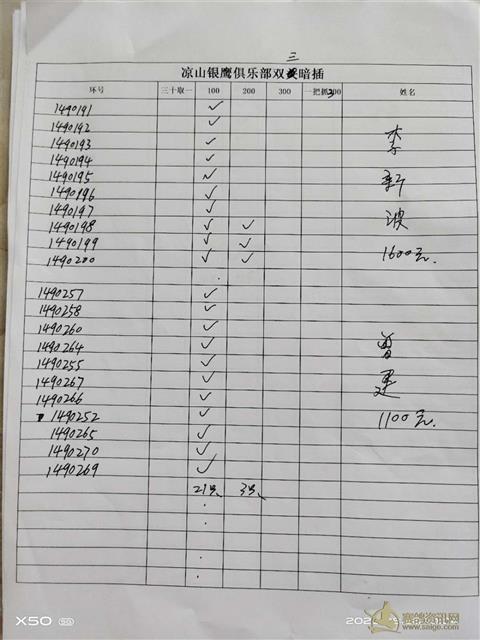 三
凉山银鹰俱乐部双暗插
环号 三十取一 100 200 300 一把抓300 姓名
1490191 ✓
1490192 ✓
1490193 ✓ 李
1490194 ✓
1490195 ✓ 新
1490196 ✓
1490197 ✓
1490198 ✓ ✓ 波
1490199 ✓ ✓
1490200 ✓ ✓ 1600元.
1490257 ✓
1490258 ✓
1490260 ✓
1490264 ✓ 曾
1490255 ✓
1490267 ✓ 建
1490266 ✓
1490252 ✓ 1100元.
1490265 ✓
1490270 ✓
1490269 ✓
21只 3只
X50 5G
赛鸽资讯网
www.saige.com